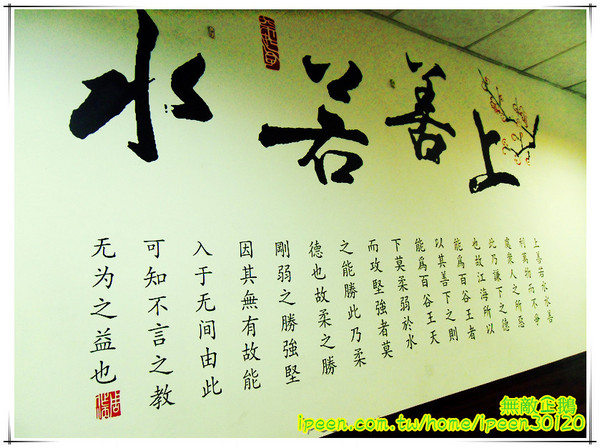 上善若水
上善若水水善
利萬物而不爭
處衆人之所惡
此乃謙下之德
也故江海所以
能爲百谷王者
以其善下之則
能爲百谷王天
下莫柔弱於水
而攻堅強者莫
之能勝此乃柔
德也故柔之勝
剛弱之勝強堅
因其無有故能
入于无间由此
可知不言之教
无为之益也
無敵企鵝
ipeen.com.tw/home/ipeen30120